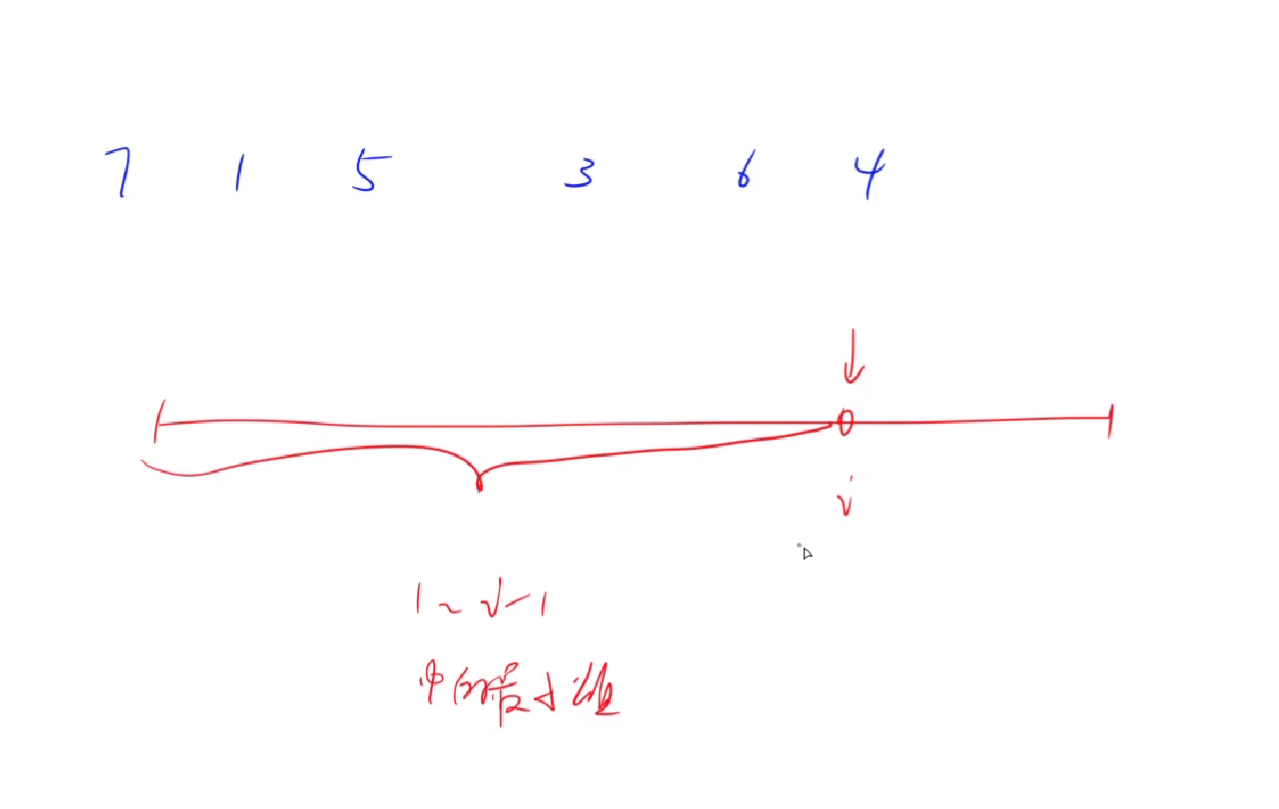 7 1 5 3 6 4
i
1~i-1
中的最小值